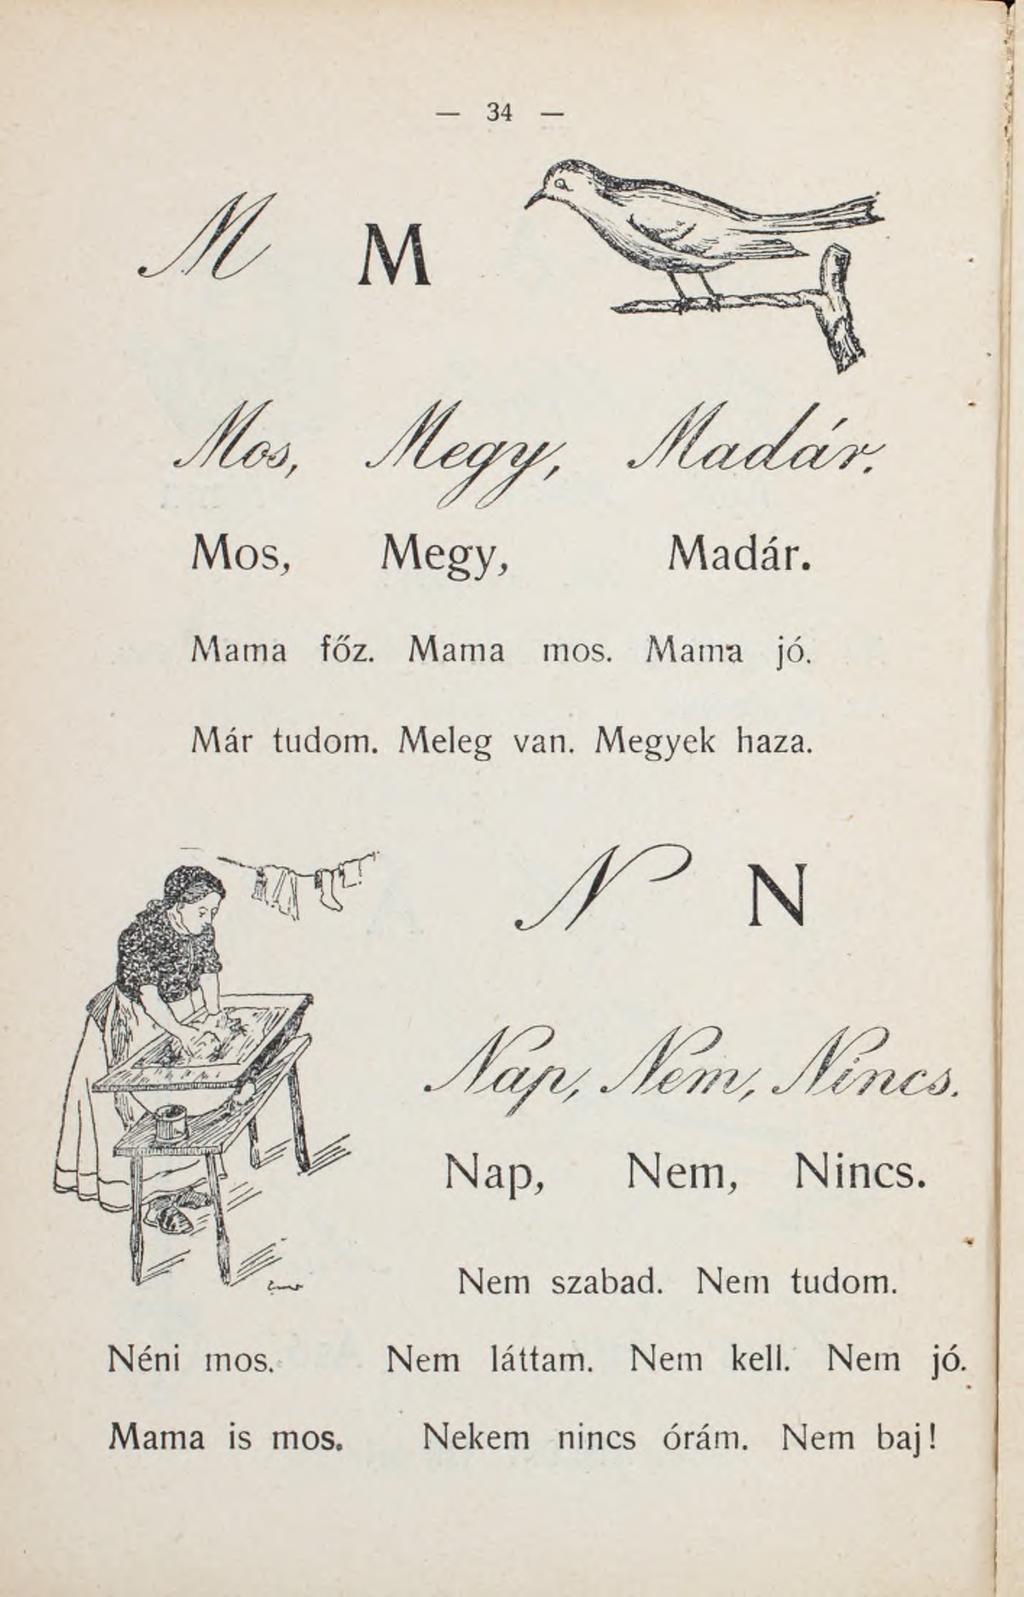 — 34 —
M M
Mos, Megy, Madár.
Mos, Megy, Madár.
Mama főz. Mama mos. Mama jó.
Már tudom. Meleg van. Megyek haza.
N N
Nap, Nem, Nincs.
Nap, Nem, Nincs.
Nem szabad. Nem tudom.
Néni mos. Nem láttam. Nem kell. Nem jó.
Mama is mos. Nekem nincs órám. Nem baj!